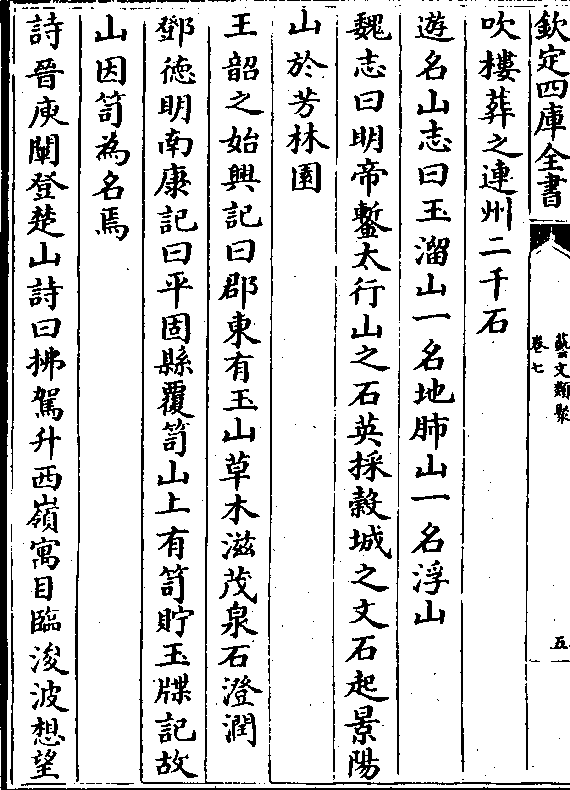 欽定四庫全書
藝文類聚
卷七
五
吹樓葬之連州二千石
遊名山志曰玉溜山一名地肺山一名浮山
魏志曰明帝鑿太行山之石英採穀城之文石起景陽
山於芳林園
王韶之始興記曰郡東有玉山草木滋茂泉石澄潤
鄧德明南康記曰平固縣覆笥山上有笥貯玉牒記故
山因笥為名焉
詩晉庾闡登楚山詩曰拂駕升西嶺寓目臨浚波想望